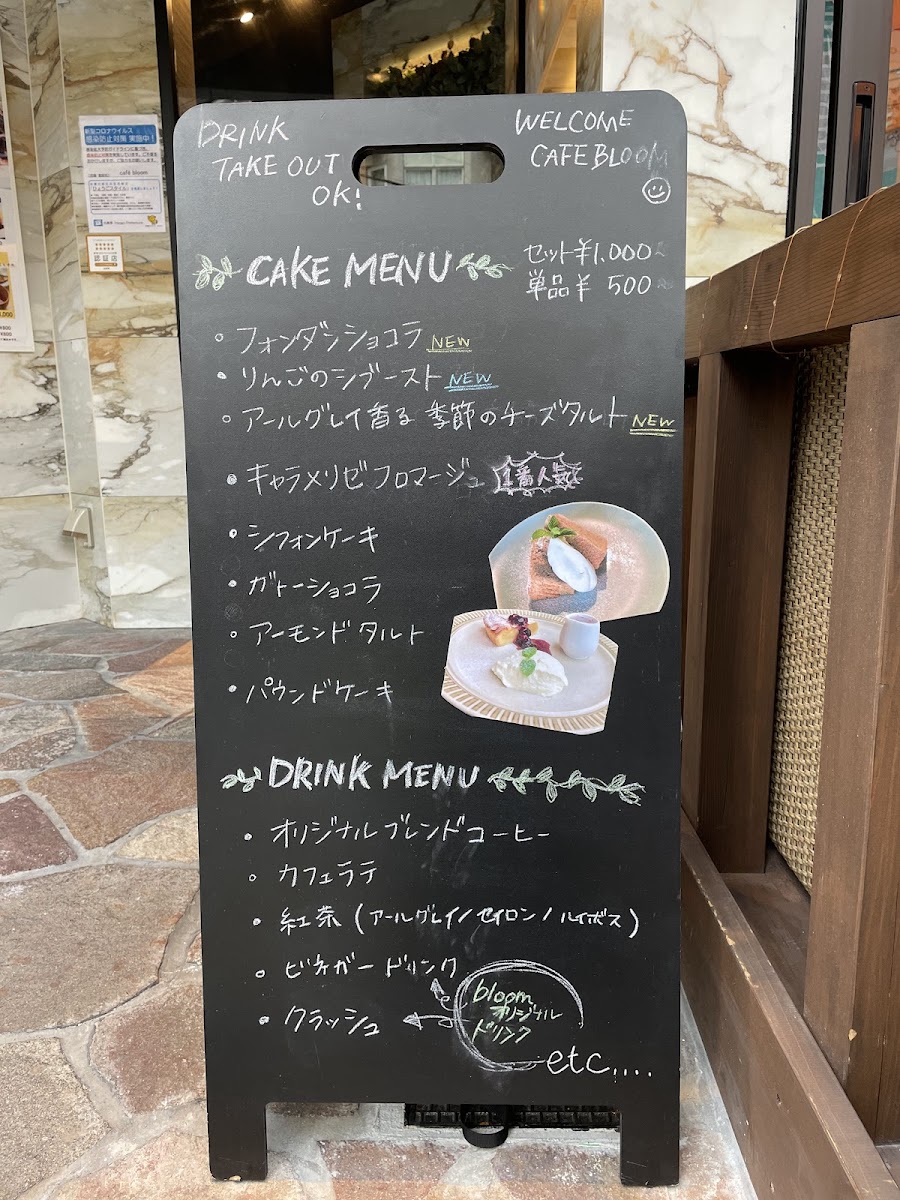 DRINK
TAKE OUT
OK!
WELCOME
CAFE BLOOM
CAKE MENU
セット¥1,000~
単品¥ 500~
・フォンダンショコラ NEW
・りんごのシブースト NEW
・アールグレイ香る 季節のチーズタルト NEW
・キャラメリゼフロマージュ 1番人気
・シフォンケーキ
・ガトーショコラ
・アーモンドタルト
・パウンドケーキ
DRINK MENU
・オリジナルブレンドコーヒー
・カフェラテ
・紅茶(アールグレイ/セイロン/ルイボス)
・ビネガードリンク
・クラッシュ
bloom
オリジナル
ドリンク
etc....
新型コロナウイルス
感染防止対策 実施中!
café bloom
認証店